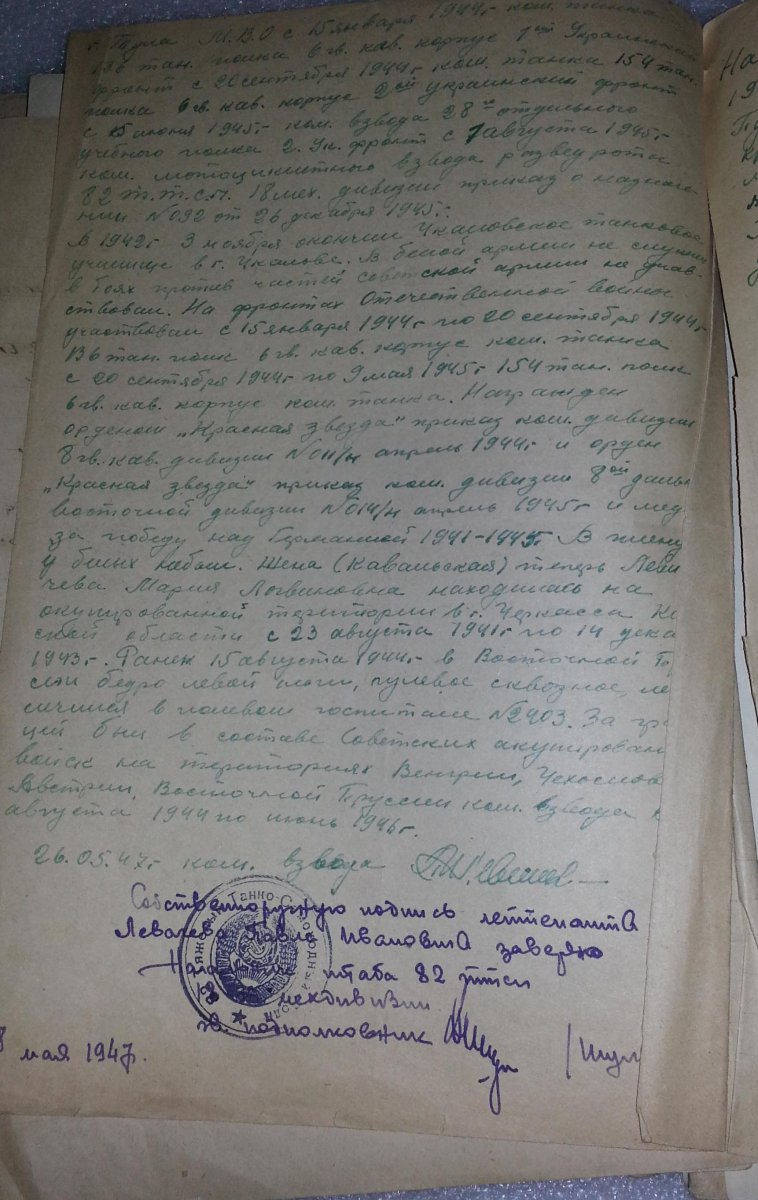 г. Тула М.В.О с 15 января 1944г. ком. танка
136 тан. полка 6 гв. кав. корпус 1ый Украинский
фронт с 20 сентября 1944г. ком. танка 154 тан.
полка 6 гв. кав. корпус 2ой украинский фронт
с 15 июня 1945г. ком. взвода 28го отдельного
учебного полка 2. Ук. фронт с 7 августа 1945г.
ком. мотоциклетного взвода разведрота
82 т.т.с.п. 18 мех. дивизии приказ о назначе-
нии №092 от 26 декабря 1945г.
В 1942г. 3 ноября окончил Чкаловское танковое
училище в г. Чкалове. В белой армии не служил
в боях против частей советской армии не учав-
ствовал. На фронтах Отечественной войны
участвовал с 15 января 1944г по 20 сентября 1944г
136 тан. полк 6 гв. кав. корпус ком. танка
с 20 сентября 1944г по 9 мая 1945г 154 тан. полк
6 гв. кав. корпус ком. танка. Награжден
орденом „Красная звезда" приказ ком. дивизии
8 гв. кав. дивизии №011/н апрель 1944г и орден
„Красная звезда" приказ ком. дивизии 8ой дальн
восточной дивизии №014/н апрель 1945г и мед
за победу над Германией 1941-1945г. В плену
у белых не был. Жена (Кавальская) теперь
чева Мария Логвиновна находилась на
окупированной територии в г. Черкассы
ской области с 23 августа 1941г по 14 дека
1943г. Ранен 15 августа 1944г. в Восточной П
сии бедро левой ноги, пулевое сквозное, ле
лечился в полевом госпитале №2403. За гра
цей был в составе Советских окупирован
войск на територии Венгрии, Чехослов
Австрии, Восточной Пруссии ком. взвода
августа 1944 по июнь 1946г.
26.05.47г. ком. взвода
Собственноручную подпись лейтенанта
Левачева Павла Ивановича заверяю
Начальник штаба 82 ттсп
мехдивизии
гв. подполковник
мая 1947г.